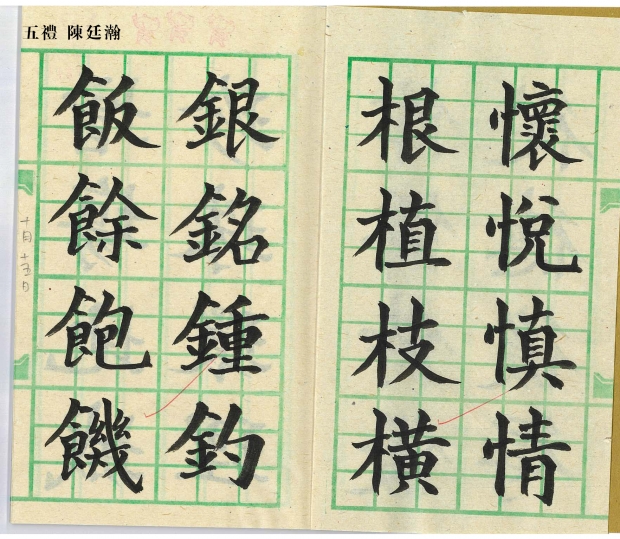 五禮 陳廷瀚
懷悅慎情
根植枝橫
銀銘鍾釣
飯餘飽饑
十月十五日